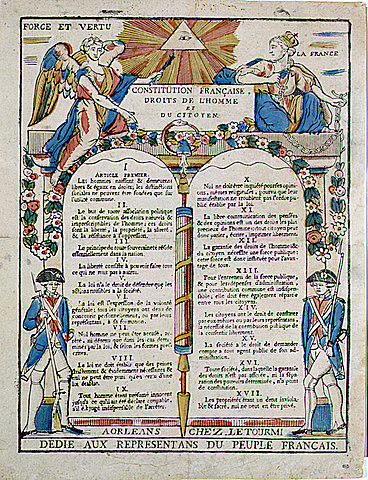 FORCE ET VERTU
LA FRANCE
CONSTITUTION FRANÇAISE.
DROITS DE L'HOMME
ET
DU CITOYEN.
I
ARTICLE PREMIER.
Les hommes naissent & demeurent
libres & égaux en droits; les distinctions
sociales ne peuvent être fondées que sur
l'utilité commune.
II.
Le but de toute association politique
est la conservation des droits naturels &
imprescriptibles de l'homme; ces droits
sont la liberté, la propriété, la sûreté,
& la résistance à l'oppression.
III
Le principe de toute souveraineté réside
essentiellement dans la nation.
IV.
La liberté consiste à pouvoir faire tout
ce qui ne nuit pas à autrui.
V.
La loi n'a le droit de défendre que les
actions nuisibles à la société.
VI.
La loi est l'expression de la volonté
générale; tous les citoyens ont droit de
concourir personnellement, ou par leurs
représentans, à sa formation.
VII.
Nul homme ne peut être accusé, arrêté,
ni détenu que dans les cas déterminés
par la loi, & selon les formes
VIII
La loi ne doit établir que des peines
strictement & évidemment nécessaires &
nul ne peut être puni qu'en vertu d'une
loi établie.
IX
Tout homme étant présumé innocent
jusqu'à ce qu'il ait été déclaré coupable,
s'il est jugé indispensable de l'arrêter.
X.
Nul ne doit être inquiété pour ses opinions,
mêmes religieuses, pourvu que leur
manifestation ne trouble pas l'ordre public
établi par la loi.
XI.
La libre communication des pensées
& des opinions est un des droits les plus
précieux de l'homme; tout citoyen peut
donc parler, écrire, imprimer librement.
XII.
La garantie des droits de l'homme & du
citoyen, nécessite une force publique;
cette force est donc instituée pour l'avantage
de tous.
XIII.
Pour l'entretien de la force publique,
& pour les dépenses d'administration,
une contribution commune est indispensable,
elle doit être également répartie
entre tous les citoyens.
XIV.
Les citoyens ont le droit de constater
par eux-mêmes ou par leurs représentans,
la nécessité de la contribution publique de
la consentir librement.
XV.
La société a le droit de demander
compte à tout agent public de son administration.
XVI.
Toute société, dans laquelle la garantie
des droits n'est pas assurée, ni la séparation
des pouvoirs déterminée, n'a point
de constitution.
XVII.
Les propriétés étant un droit inviolable
& sacré, nul ne peut en être privé.
A ORLEANS CHEZ LETOURMI
DEDIE AUX REPRESENTANS DU PEUPLE FRANCAIS.